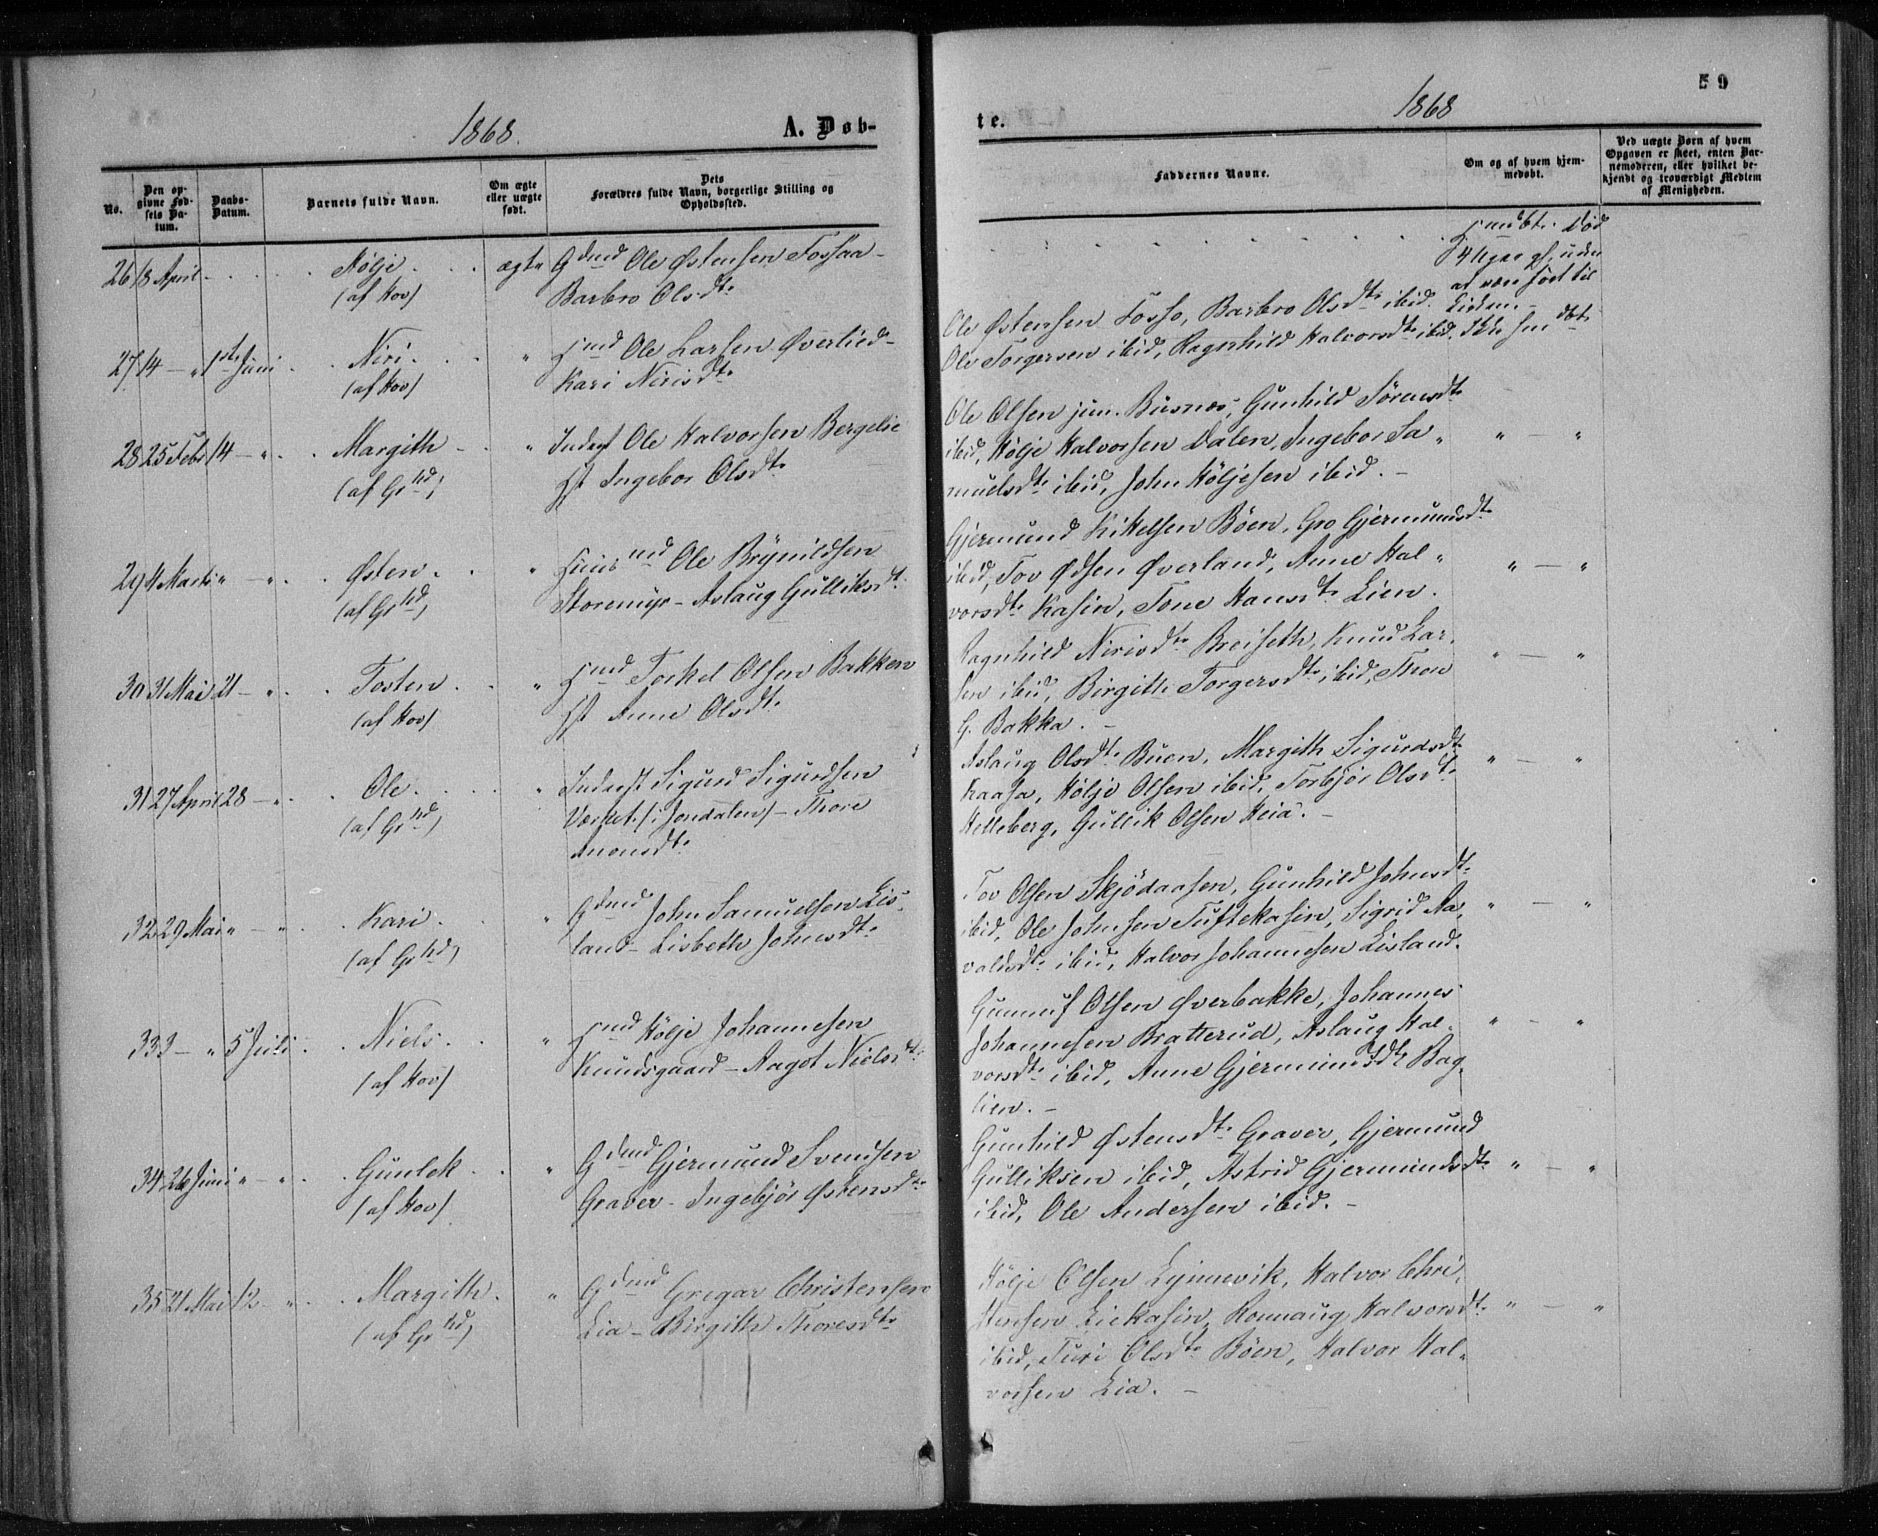 1868.
A. Døb-
No.
Den op-
givne Fød-
sels Da-
tum.
Daabs-
Datum.
Barnets fulde Navn.
Om ægte
eller uægte
født.
Dets
Forældres fulde Navn, borgerlige Stilling og
Opholdssted.
26 18 April . . . . . Hølje . . . ægte Gdmd Ole Østensen Fossaa -
(af Hov) Barbro Olsdtr
27 14 - " 1ste Juni . . Niri . . . " Ole Larsen Øverlied -
(af Hov) Kari Nirisdtr
28 25 Febr 14 - " . . Margith - . " Inderst Ole Halvorsen Bergelie
(af Grhd) Ingebor Olsdtr
29 4 Marts " - " . . Østen . . " Ole Brynildsen
(af Grhd) Storemyr - Aslaug Gulliksdtr
30 31 Mai 21 - " . . Tosten . . " Torkel Olsen Bakken
(af Hov) Anne Olsdtr
31 27 April 28 - " . . Ole . . . " Inderst Sigurd Sigurdsen
(af Grhd) (i Jondalen) - Thore
Anonsdtr
32 29 Mai " - " . . Kari . . " Gdmd John Samuelsen Lis-
(af Grhd) land - Lisbeth Johnsdtr
33 3 - " 5 Juli . . Niels . . " Hølje Johannesen
(af Hov) Knudsgaard - Aagot Nielsdtr
34 26 Juni " - " . . Gunlek . . " Gdmd Gjermund Svendsen
(af Hov) Graver - Ingebjør Østensdtr
35 21 Mai 12 - " . . Margith . " Gdmd Gregar Christensen
(af Grhd) Lia - Birgith Thoresdtr
59
1868
te.
Faddernes Navne.
Om og af hvem hjem-
medøbt.
Ved uægte Børn af hvem
Opgaven er skeet, enten Bar-
nemoderen, eller hvilket be-
kjendt og troværdigt Medlem
af Menigheden.
. . . . . . . . . . Død
4 Uger gl, uden
at være ført til
Kirken. -
Ole Østensen Fosso, Barbro Olsdtr ibid.
Ole Torgersen ibid, Ragnhild Halvorsdtr ibid. Ikke hmdbt.
Ole Olsen jun. Busnes, Gunhild Sørensdtr
ibid, Hølje Halvorsen Dalen, Ingebor Sa " " - "
muelsdtr ibid, John Høljesen ibid. -
Gjermund Kittelsen Bøen, Gro Gjermundsdtr
ibid, Tov Øverland, Anne Hal " " - "
vorsdtr Kasin, Tone Hansdtr Lien.
Ragnhild Nirisdtr Breiseth, Knud Lar-
sen ibid, Birgith Torgersdtr ibid, Thor " - "
G. Bakka. -
Aslaug Olsdtr Buen, Margith Sigurdsdtr " - "
Kaasa, Hølje Olsen ibid, Torbjør Olsdtr
Helleberg, Gullik Olsen Heia. -
Tov Olsen Skjødaasen, Gunhild Johnsdtr
ibid, Ole Johnsen Tuftekasin, Sigrid Aa- " - "
valdsdtr ibid, Halvor Johannesen Lisland.
Gunnuf Olsen Øverbakke, Johannes
Johannesen Bratterud, Aslaug Hal- " - "
vorsdtr ibid, Anne Gjermundsdtr Bag-
lien. -
Gunhild Østensdtr Graver, Gjermund
Gulliksen ibid, Astrid Gjermundsdtr " - "
ibid, Ole Andersen ibid. -
Hølje Olsen Lynnevik, Halvor Chri-
stensen Liekasin, Ronnaug Halvorsdtr " - "
ibid, Turi Olsdtr Bøen, Halvor Hal-
vorsen Lia. -